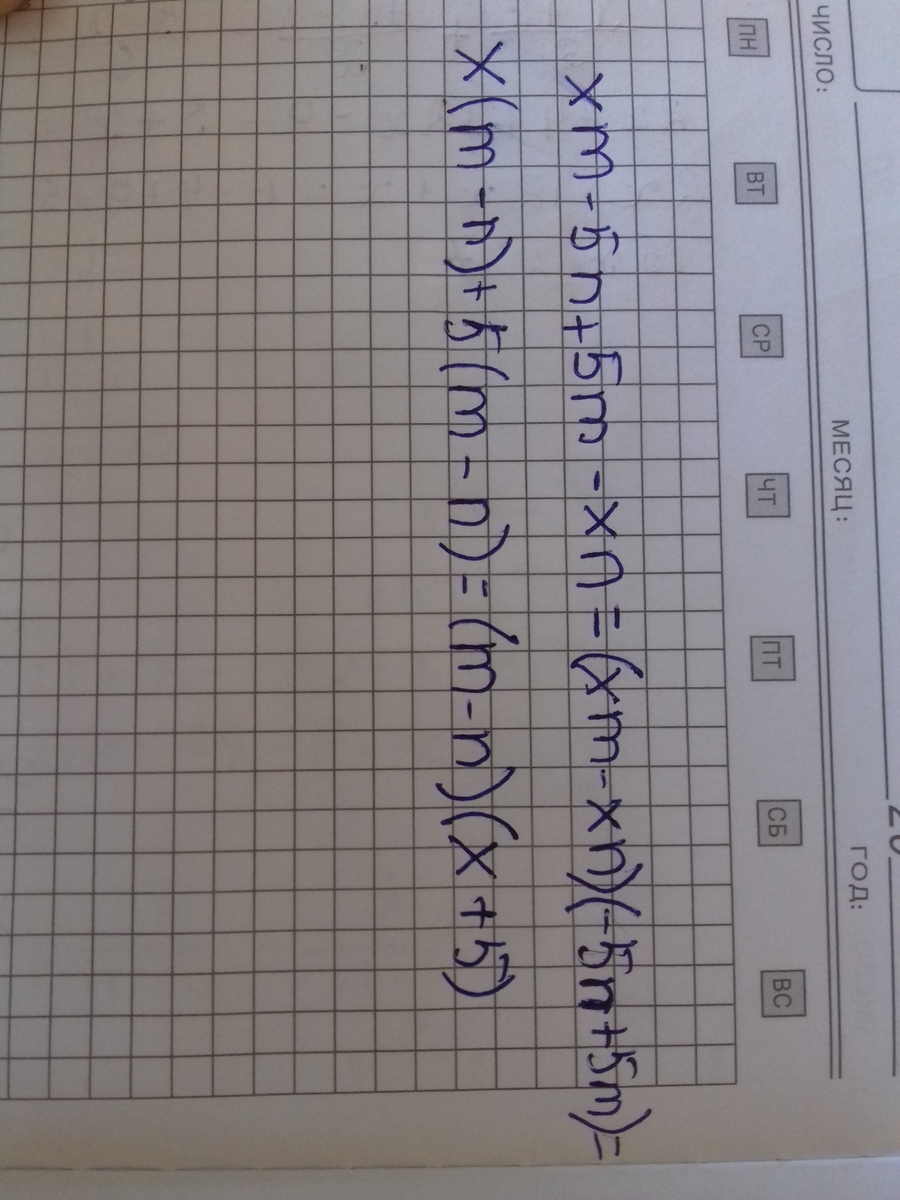 ЧИСЛО: МЕСЯЦ: ГОД:
ПН ВТ СР ЧТ ПТ СБ ВС
xm - 5n + 5m - xn = (xm - xn)(-5n + 5m) =
x(m - n) + 5(m - n) = (m - n)(x + 5)